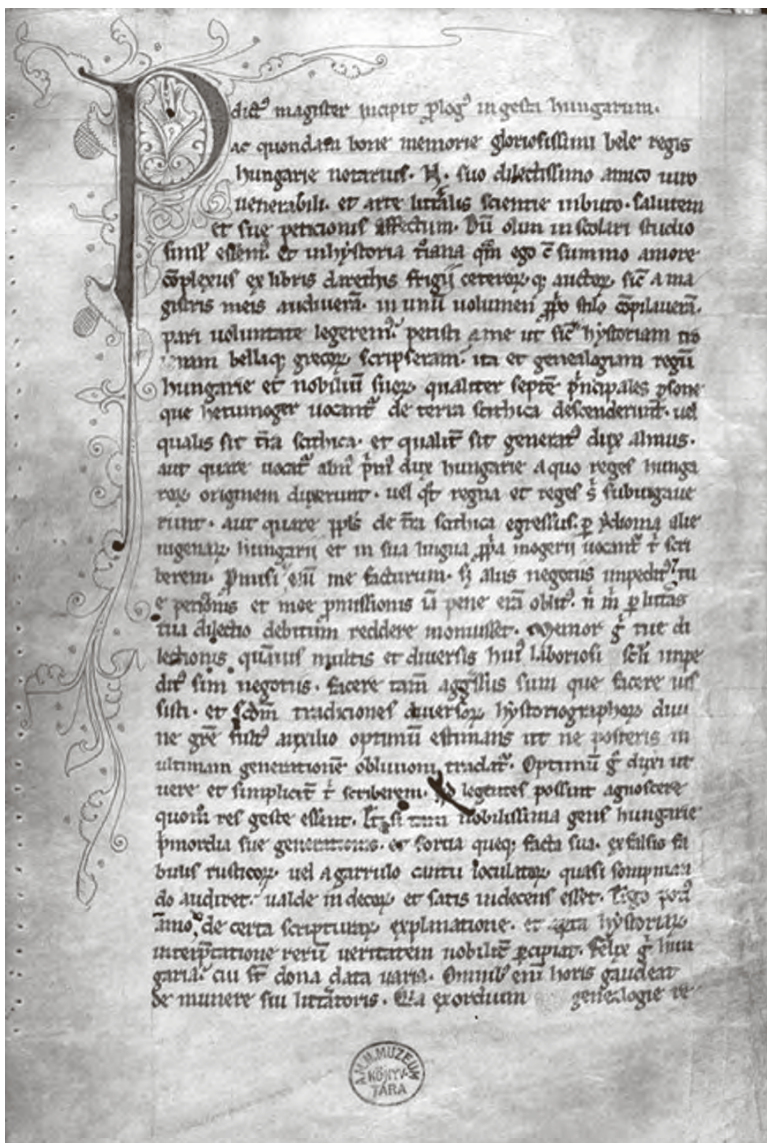 P dict᷒ magister incipit ꝓlog᷒ in gesta hungarum.
ac quondam bone memorie gloriosissimi bele regis
hungarie notarius. N. suo dilectissimo amico uiro
uenerabili. et arte litt̄alis scientie inbuto. salutem
et sue peticionis affectum. Dū olim in scolari studio
simul essem᷒. et in hystoria t̄iana qm̄ ego cū summo amore
cōplexus ex libris darethis frigij ceteroꝝ q̧ auctoꝝ. sic̄ a ma
gistris meis audiuerā. in unū uolumen ꝓp̄o stilo cōpilauerā.
pari uoluntate legerem᷒. petisti a me ut sic̄ hystoriam tro
ianam bellaq̧ grecoꝝ scripseram. ita et genealogiam regū
hungarie et nobiliū suoꝝ. qualiter septē p̄ncipales ꝑsone
que hetumoger uocant᷑ de terra scithica descenderunt. uel
qualis sit t̄ra scithica. et qualit̄ sit generat᷒ dux almus.
aut quare uocat᷑ alm᷒ p̄m᷒ dux hungarie a quo reges hunga
roꝝ originem duxerunt. uel qt̄ regna et reges s̄ subiugaue
runt. aut quare ppl̄s de t̄ra scithica egressus. ꝑ ydioma alie
nigenaꝝ hungarii et in sua lingua ꝓp̄a mogerii uocant᷑ t̄ scri
berem. Promisi et̄iā me facturum. sꝫ aliis negotiis impedit᷒. tu
e peticionis et mee ꝓmissionis iā pene erā oblit᷒. n̄ m̄ ꝑ litt̄as
tua dilectio debitum reddere monuisset. Memor g̊ tue di
lectionis. quāuis multis et diuersis hui᷒ laboriosi scl̄i impe
dit᷒ sim negotiis. facere tam̄ aggressus sum que facere ius
sisti. et scd̄m tradiciones diuersoꝝ hystoriographoꝝ diui
ne grē fult᷒ auxilio optimū estimans ut ne posteris in
ultimam generationē obliuioni tradat᷑. Optimū g̊ duxi ut
uere et simplicit̄ t̄ scriberem. qd̄ legentes possint agnoscere
quom̄ res geste essent. Et si tam nobilissima gens hungarie
p̄mordia sue generationis. et fortia queq̧ facta sua. ex falsis fa
bulis rusticoꝝ. uel a garrulo cantu ioculatoꝝ quasi sompnian
do audiret. ualde indecoꝝ et satis indecens esset. Ergo pot᷒
amo᷒ de certa scripturaꝝ explanatione. et apta hystoriaꝝ
interp̄tatione rerū ueritatem nobilit̄ ꝑcipiat. Felix g̊ hun
garia. cui st̄ dona data uaria. Omnib᷒ enī horis gaudeat
de munere sui litt̄atoris. Quia exordium genealogie re
A.M.N.MUZEUM
KÖNYV-
TÁRA